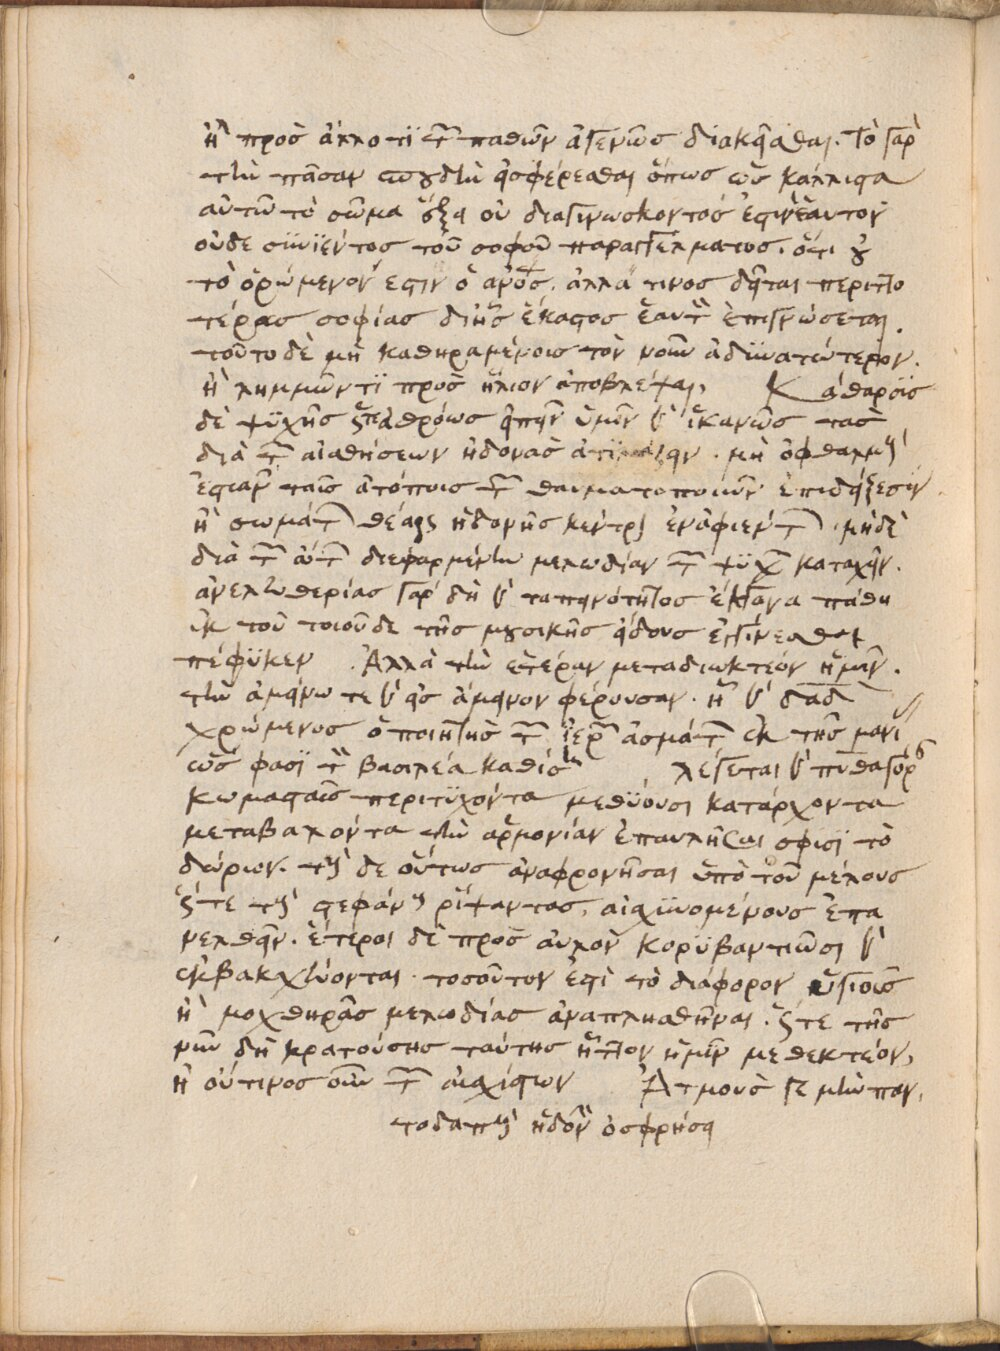 ἢ πρὸς ἄλλό τι τῶν παθῶν ἀγεννῶς διακεῖσθαι. Τὸ γὰρ
τὴν πᾶσαν σπουδὴν εἰσφέρεσθαι ὅπως ὡς κάλλιστα
αὐτῶ τὸ σῶμα ἕξει οὐ διαγινώσκοντός ἐστιν ἑαυτὸν
οὐδὲ συνϊέντος τοῦ σοφοῦ παραγγέλματος. ὅτι οὐ
τὸ ὁρώμενόν ἐστιν ὁ ἄνος. ἀλλά τινος δεῖται περιττο
τέρας σοφίας δι' ἧς ἕκαστος ἑαυτὸν ἐπιγνώσεται.
τοῦτο δὲ μὴ καθηραμένοις τὸν νοῦν ἀδυνατώτερον.
ἢ λημμῶντι πρὸς ἥλιον ἀποβλέψαι. Κάθαρσις
δὲ ψυχῆς ὥς τε ἀθρόως εἰπεῖν ὑμῖν καὶ ἱκανῶς τὰς
διὰ τῶν αἰσθήσεων ἡδονὰς ἀτιμάζειν. μὴ ὀφθαλμοὺς
ἑστιᾶν ταῖς ἀτόποις τῶν θαυματοποιῶν ἐπιδείξεσιν
ἢ σωμάτων θέαις ἡδονῆς κέντρον ἐναφιέντων. μὴ δὲ
διὰ τῶν ὤτων διεφθαρμένην μελωδίαν τῶν ψυχῶν καταχεῖν.
ἀνελευθερίας γὰρ δὴ καὶ ταπεινότητος ἔκγονα πάθη
ἐκ τοῦ τοιοῦδε τῆς μουσικῆς εἴδους ἐγγίνεσθαι
πέφυκεν. Ἀλλὰ τὴν ἑτέραν μεταδιωκτέον ἡμῖν.
τὴν ἀμείνω τε καὶ εἰς ἄμεινον φέρουσαν. ᾗ καὶ δᾱδ
χρώμενος ὁ ποιητὴς τῶν ἱερῶν ἀσμάτων ἐκ τῆς μανί
ὥς φασι τὸν βασιλέα καθίστη λέγεται καὶ πυθαγόρ
κωμασταῖς περιτυχόντα μεθύουσι κατάρχοντα
μεταβαλόντα τὴν ἁρμονίαν ἐπαυλῆσαι σφισὶ τὸ
δώριον. τοὺς δὲ οὕτως ἀναφρονῆσαι ὑπὸ τοῦ μέλους
ὥστε τοὺς στεφάνους ῥίψαντας, αἰσχυνομένους ἐπα
νελθεῖν. ἕτεροι δὲ πρὸς αὐλὸν κορυβαντιῶσι καὶ
ἐκβακχεύονται. τοσοῦτόν ἐστι τὸ διάφορον ὑγιοῦς
ἢ μοχθηρᾶς μελωδίας ἀναπλησθῆναι. ὥστε τῆς
νῦν δὴ κρατούσης ταύτης ἧττον ἡμῖν μεθεκτέον,
ἢ οὕτινος οὖν τῶν αἰσχίστων Ἀτμούς γε μὴν παν
τοδαποὺς ἡδονὴν ὀσφρήσει